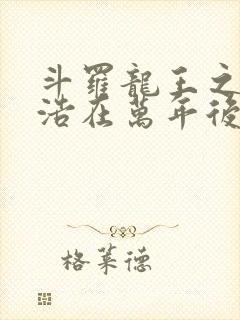 斗羅龍王之
浩在萬年後
格萊德